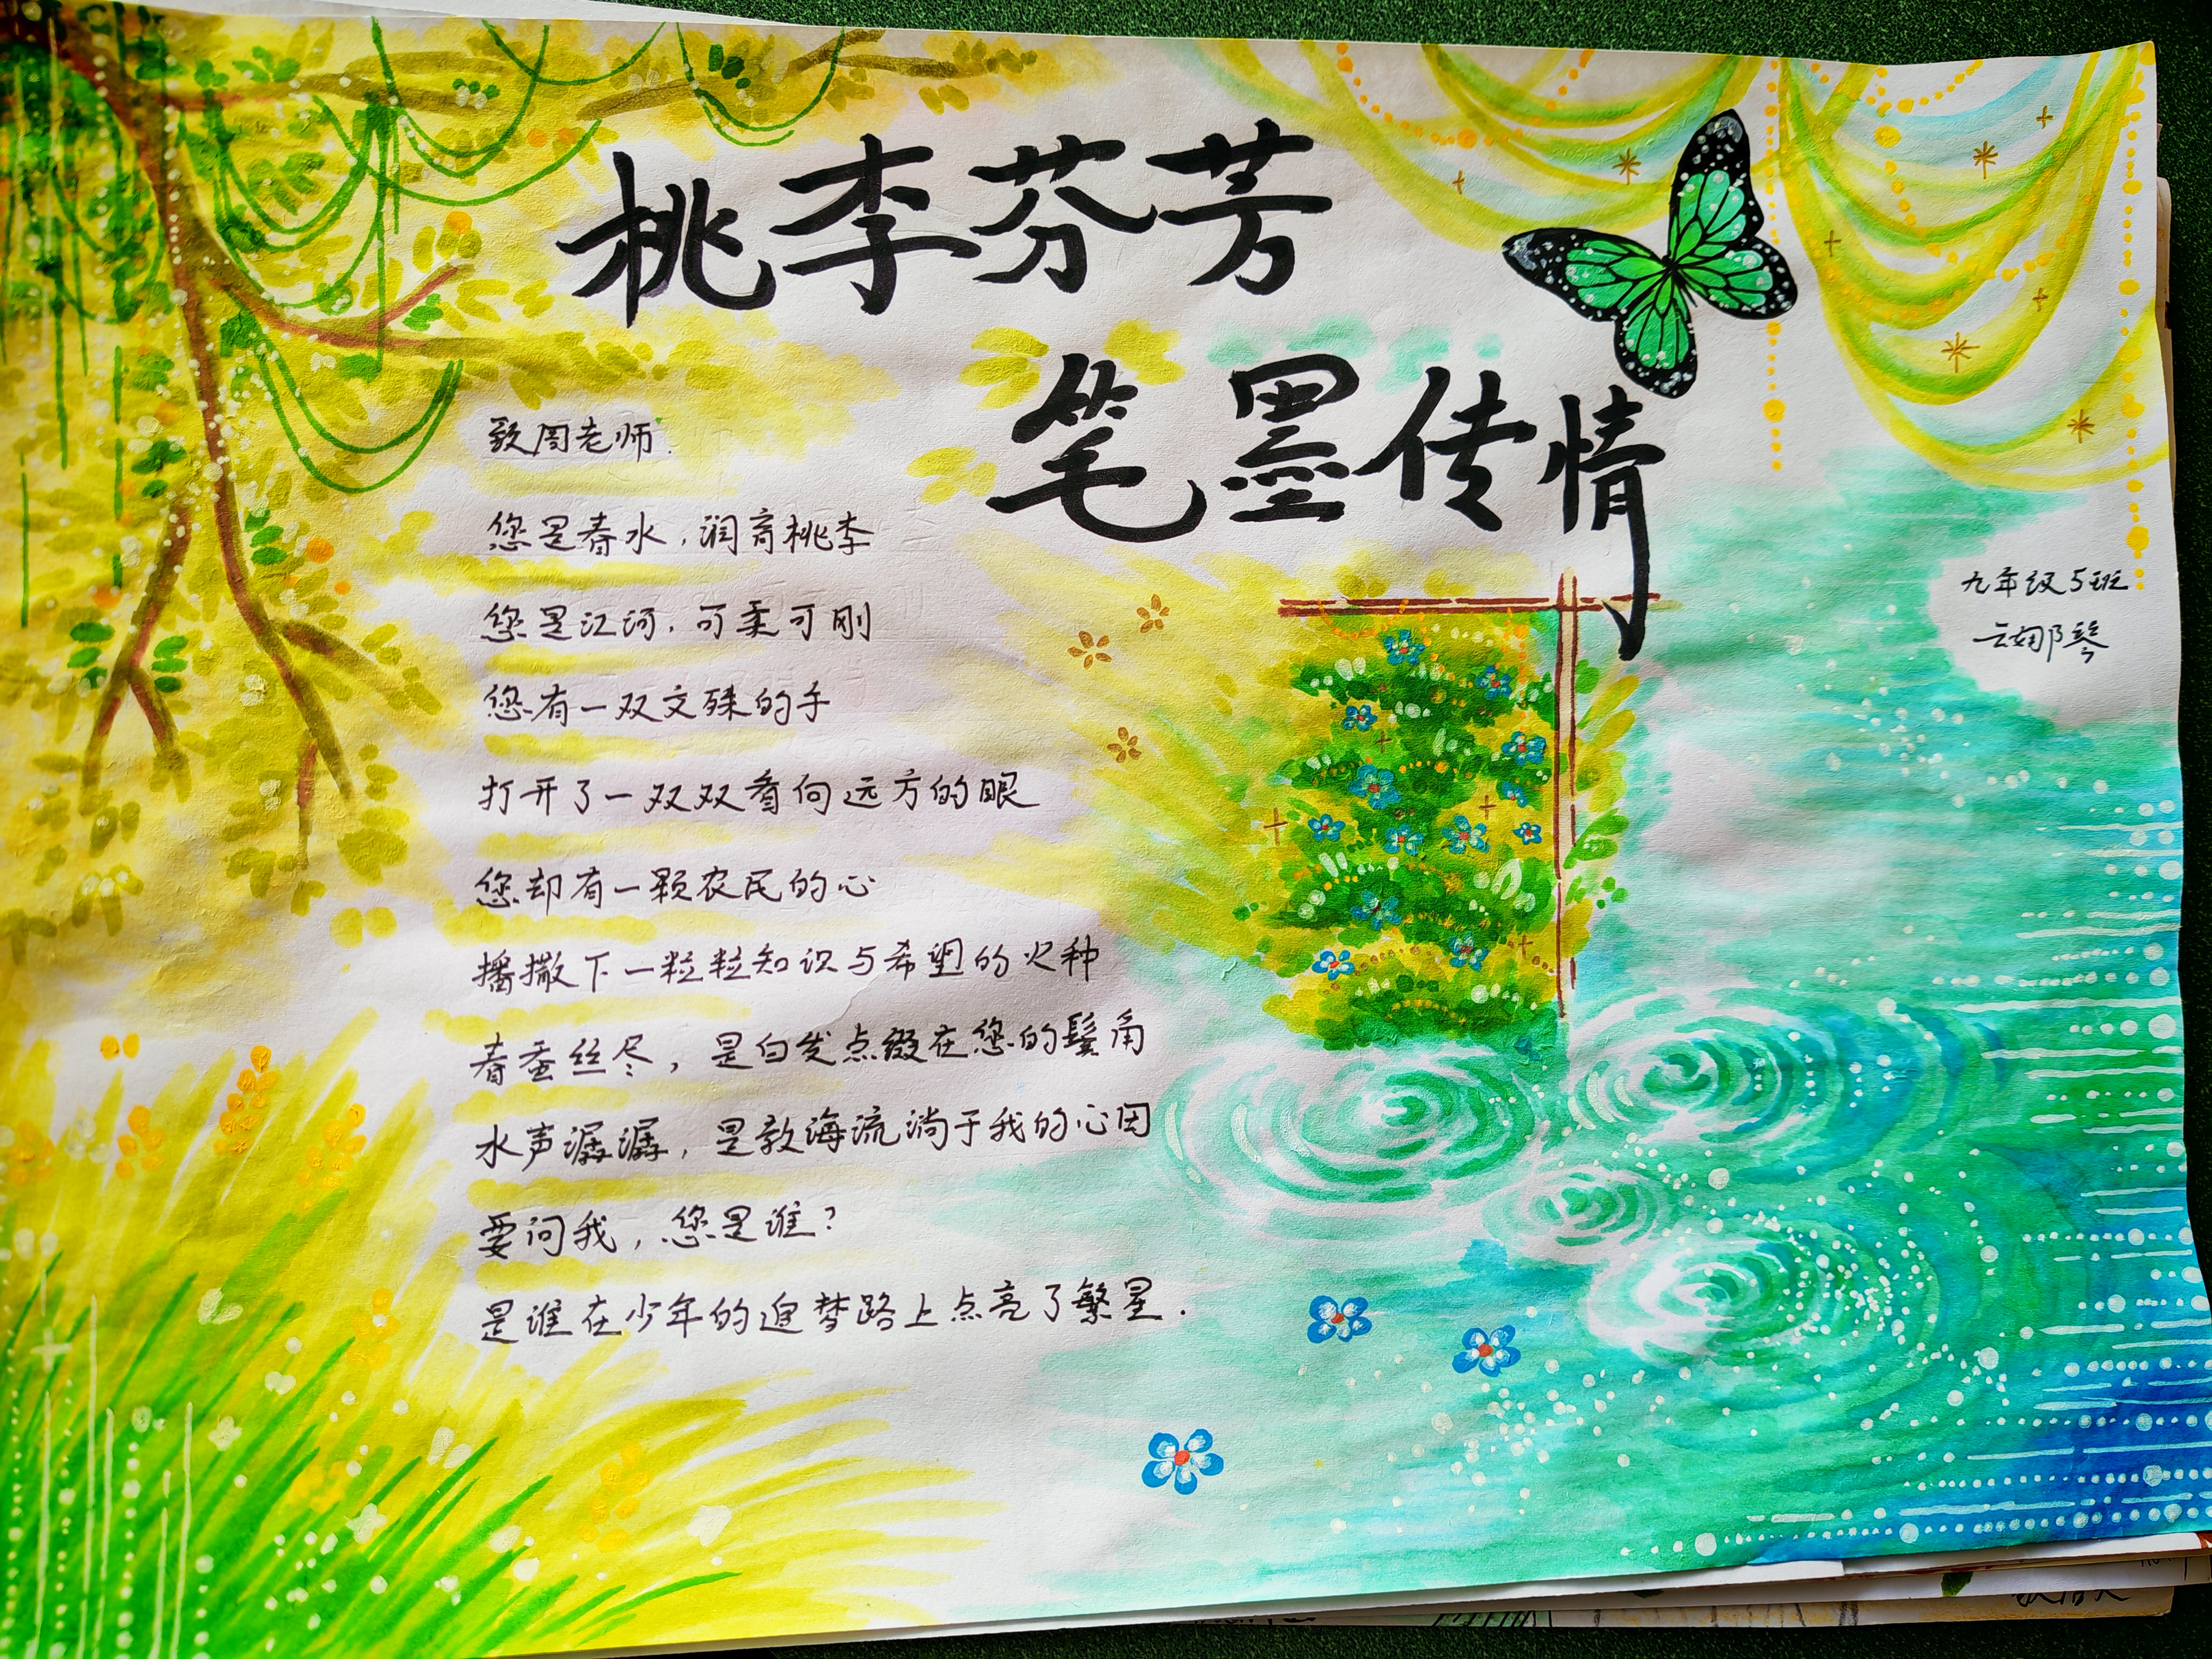 桃李芬芳
笔墨传情
致周老师.
您是春水,润育桃李
您是江河,可柔可刚
您有一双文殊的手
打开了一双双看向远方的眼
您却有一颗农民的心
播撒下一粒粒知识与希望的火种
春蚕丝尽,是白发点缀在您的鬓角
水声潺潺,是教海流淌于我的心田
要问我,您是谁?
是谁在少年的追梦路上点亮了繁星.
九年级5班
云娜琴